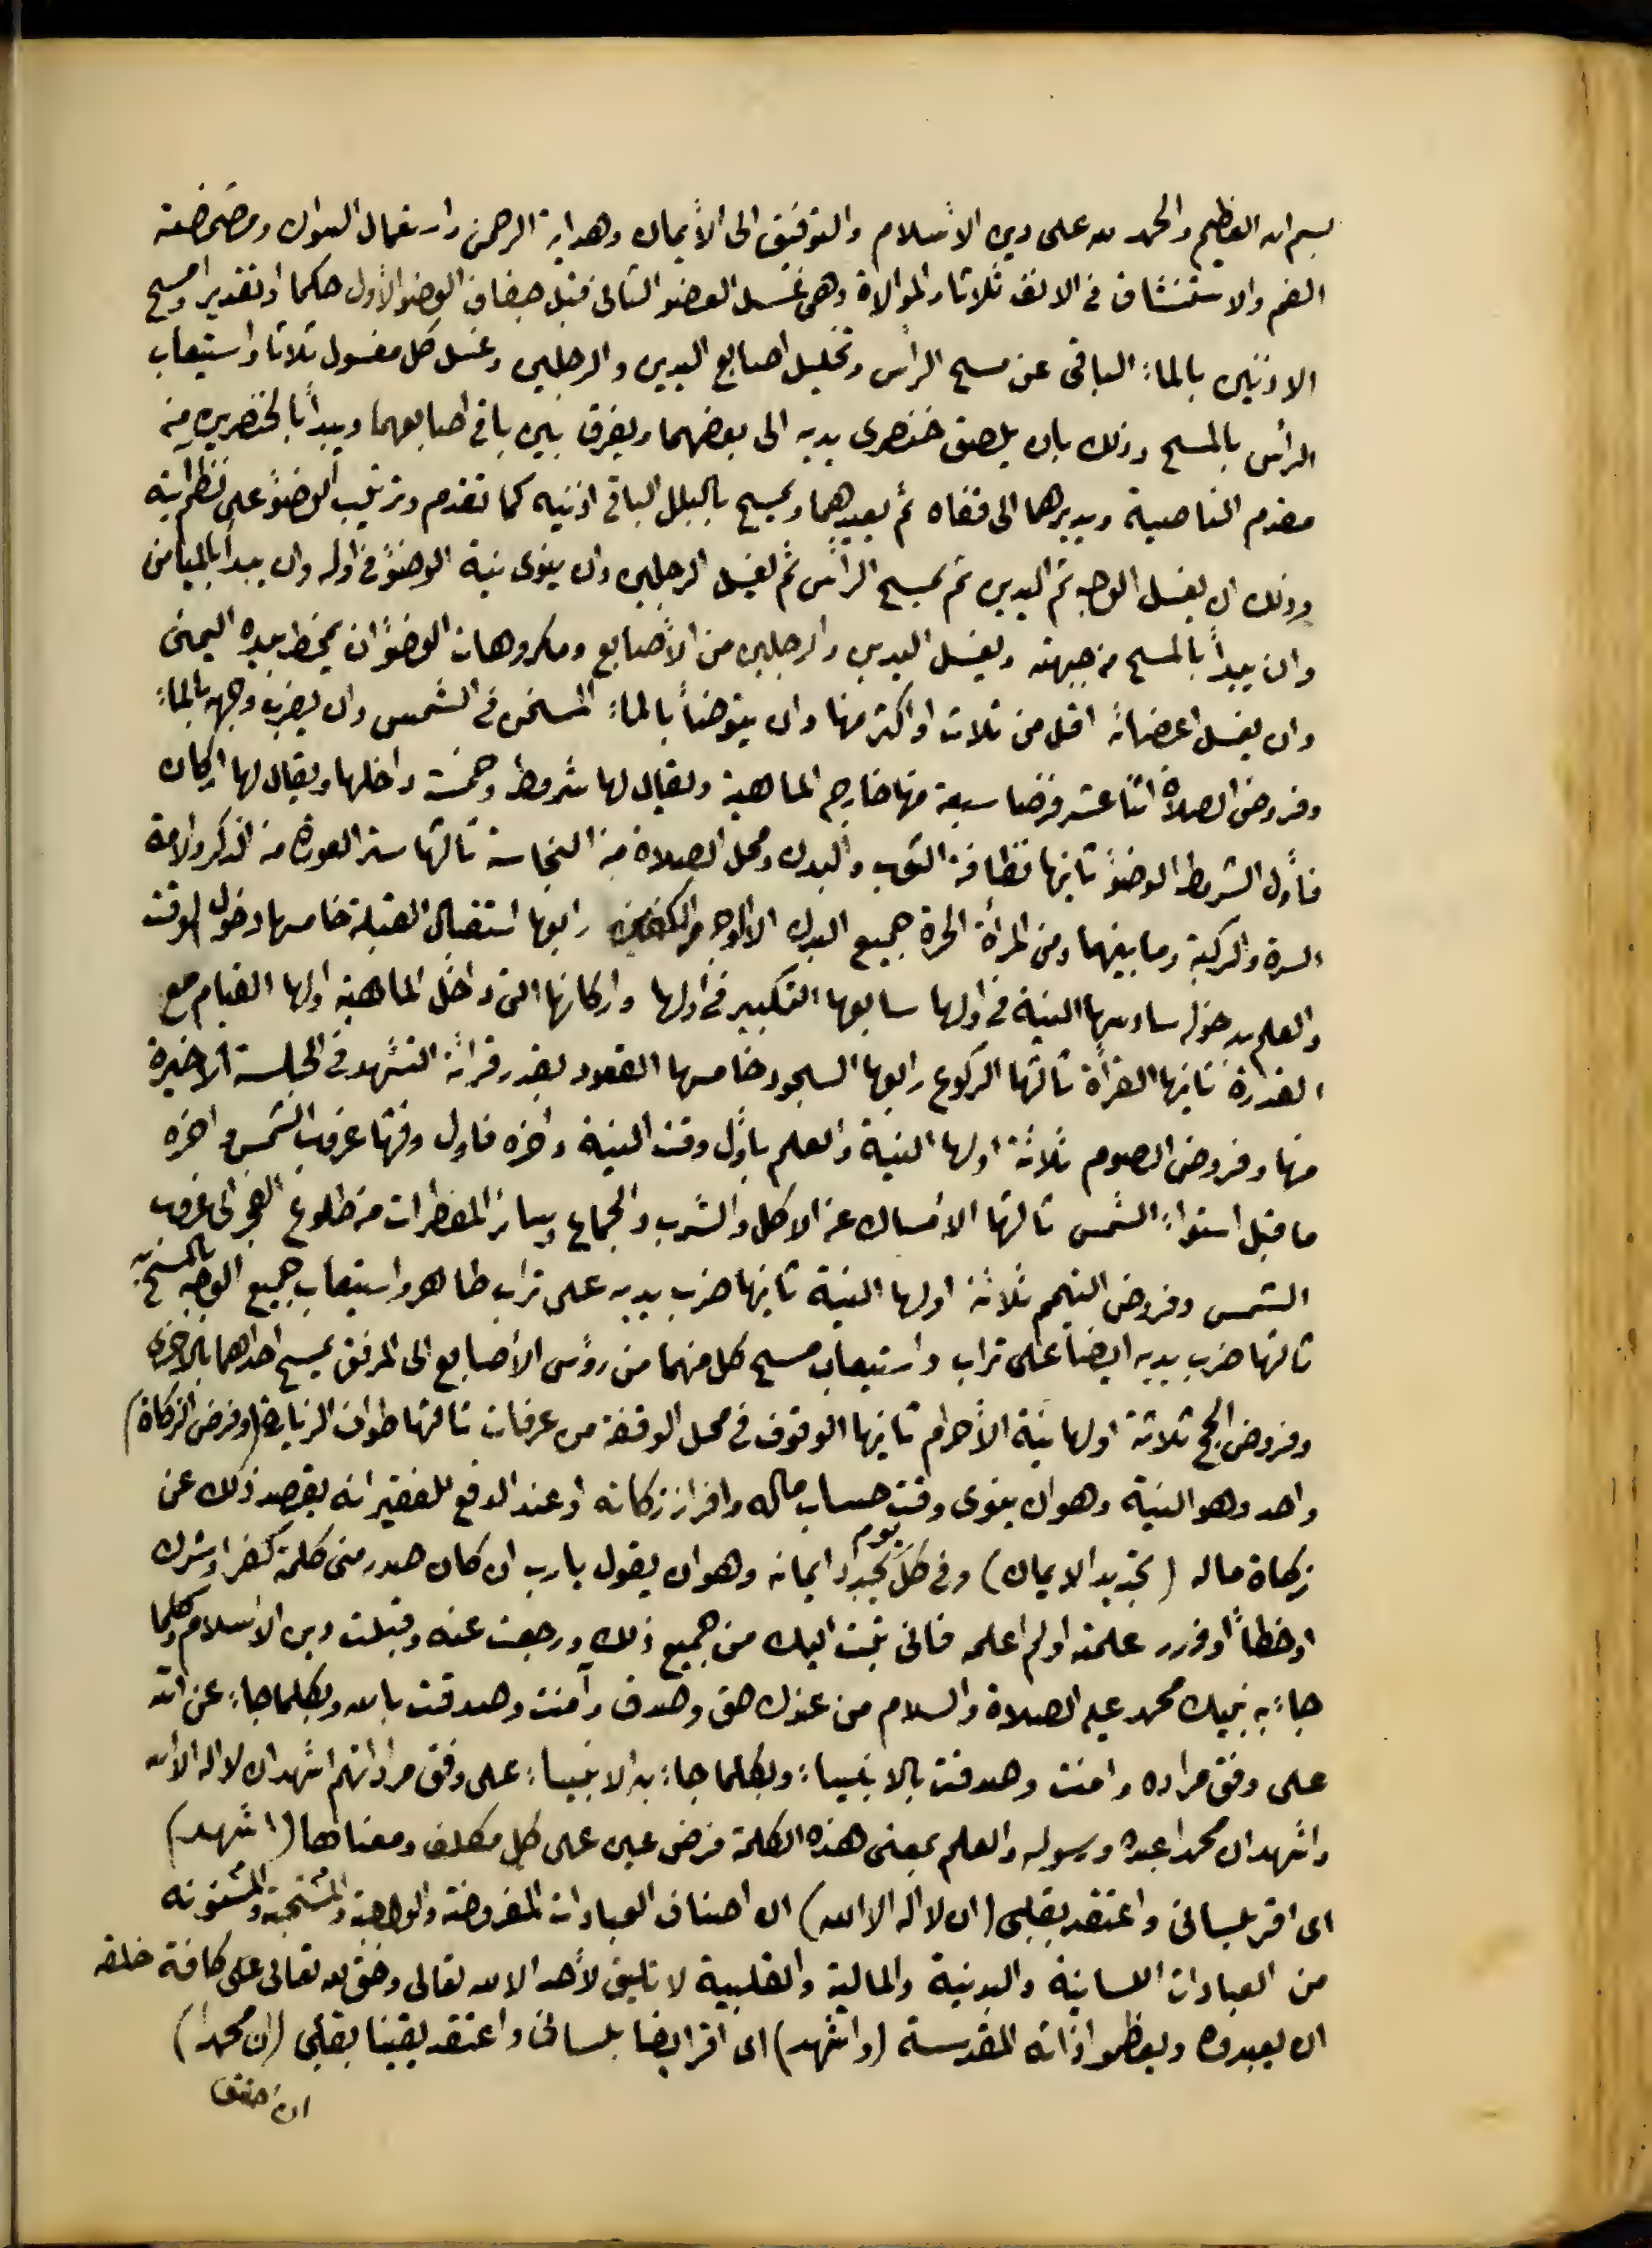 بسم الله العظيم والحمد لله على دين الاسلام والتوفيق الى الأيمان وهداية الرحمن واستعمال السواك ومضمضة
الفم والاستنشاق فى الانف ثلاثا والموالاة وهى غسل العضو الثانى قبل جفاف العضو الأول حكما او تقديرا ومسح
الاذنين بالماء الباقى عن مسح الرأس وتخليل اصابع اليدين والرجلين وغسل كل مغسول ثلاثا واستيعاب
الرأس بالمسح وذلك بان يلصق خنصرى يديه الى بعضهما ويفرق بين باقى اصابعهما ويبدأ بالخنصرين من
مقدم الناصية ويديرهما الى قفاه ثم يعيدهما ويمسح بالبلل الباقى اذنيه كما تقدم وترتيب الوضوء على نظم آيته
وذلك ان يغسل الوجه ثم اليدين ثم يمسح الرأس ثم يغسل الرجلين وان ينوى نية الوضوء فى اوله وان يبدأ بالميامن
وان يبدأ بالمسح من جبهته ويغسل اليدين والرجلين من الأصابع ومكروهات الوضوء ان يمخط بيده اليمنى
وان يغسل اعضائه اقل من ثلاث او اكثر منها وان يتوضأ بالماء المسخن فى الشمس وان يضرب وجهه بالماء
وفروض الصلاة اثنا عشر فرضا سبعة منها خارج الماهية ويقال لها شروط وخمسة داخلها ويقال لها اركان
فأول الشروط الوضوء ثانيها نظافة الثوب والبدن ومحل الصلاة من النجاسة ثالثها ستر العورة من الذكر والامة
السرة والركبة وما بينهما ومن المرأة الحرة جميع البدن الا الوجه والكفين رابعها استقبال القبلة خامسها دخول الوقت
والعلم بدخوله سادسها النية فى اولها سابعها التكبير فى اولها واركانها التى داخل الماهية اولها القيام مع
القدرة ثانيها القرأة ثالثها الركوع رابعها السجود خامسها القعود بقدر قرائة التشهد فى الجلسة الاخيرة
منها وفروض الصوم ثلاثة اولها النية والعلم بأول وقت النية واخره فاول وقتها غروب الشمس واخره
ما قبل استواء الشمس ثالثها الأمساك عن الاكل والشرب والجماع وسائر المفطرات من طلوع الفجر الى غروب
الشمس وفروض التيمم ثلاثة اولها النية ثانيها ضرب يديه على تراب طاهر واستيعاب جميع الوجه بالمسح به
ثالثها ضرب يديه ايضا على تراب واستيعاب مسح كل منهما من رؤس الأصابع الى المرفق يمسح احداهما بالاخرى
وفروض الحج ثلاثة اولها نية الأحرام ثانيها الوقوف فى محل الوقفة من عرفات ثالثها طواف الزيارة (وفرض الزكاة)
واحد وهو النية وهو ان ينوى وقت حساب ماله وافراز زكاته او عند الدفع للفقير انه يقصد ذلك عن
زكاة ماله (تجديد الايمان) وفى كل يوم يجدد ايمانه وهو ان يقول يا رب ان كان صدر منى كلمة كفر او شرك
او خطأ او وزر علمته او لم اعلمه فانى تبت اليك من جميع ذلك ورجعت عنه وقبلت دين الاسلام وكلما
جاء به نبيك محمد عليه الصلاة والسلام من عندك حق وصدق وآمنت وصدقت بالله وبكلما جاء عن الله
على وفق مراده وامنت وصدقت بالانبياء وبكلما جاء به الانبياء على وفق مراداتهم اشهد ان لا اله الا الله
واشهد ان محمدا عبده ورسوله والعلم بمعنى هذه الكلمة فرض عين على كل مكلف ومعناها (اشهد)
اى اقر بلسانى واعتقد بقلبى (ان لا اله الا الله) ان اصناف العبادات المفروضة والواجبة والمستحبة والمسنونه
من العبادات اللسانية والبدنية والمالية والقلبية لا تليق لأحد الا لله تعالى وحق لله تعالى على كافة خلقه
ان يعبدوه ويعظموا ذاته المقدسة (واشهد) اى اقر ايضا بلسانى واعتقد يقينا بقلبى (ان محمدا)